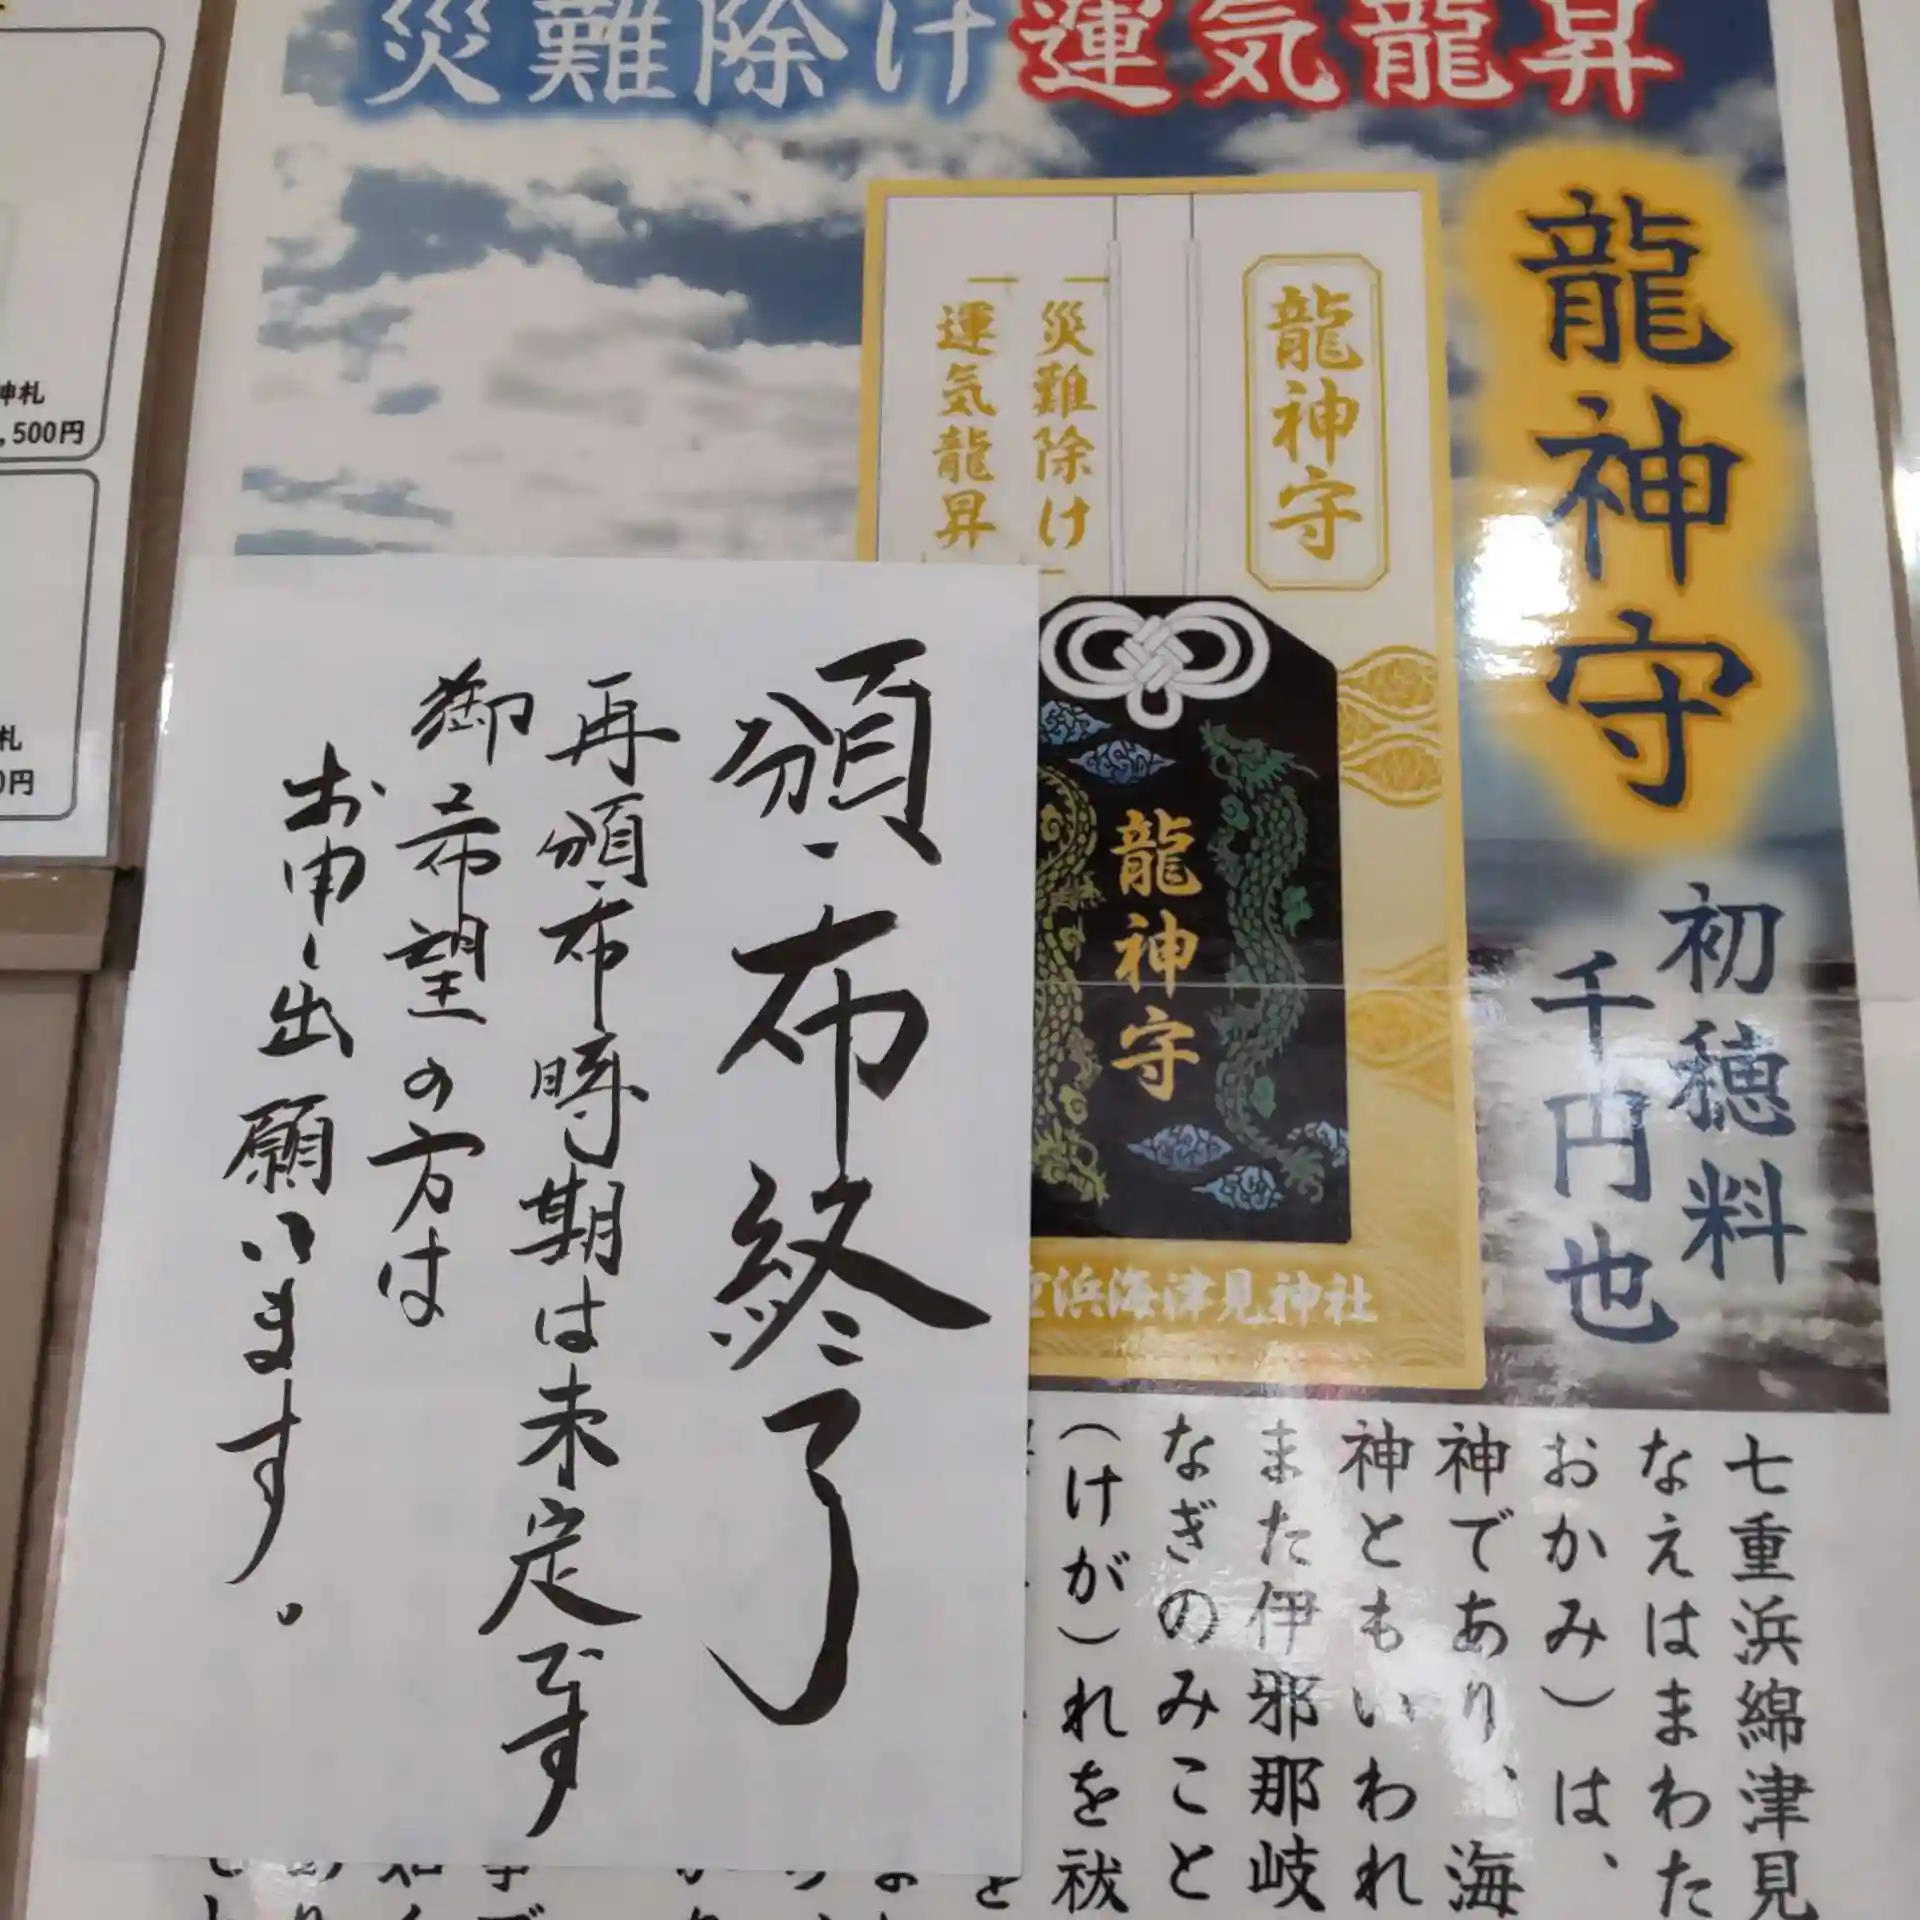 災難除け運気龍昇
龍神守
初穂料
千円也
龍神守
災難除け
運気龍昇
龍神守
浜海津見神社
七重浜綿津見
なえはまわた
おかみ)は、
神であり、海
神ともいわれ
また伊邪那岐
なぎのみこと
(けが)れを祓
頒布終了
再頒布時期は未定です
御希望の方は
お申し出願います。
神札
,500円
札
0円